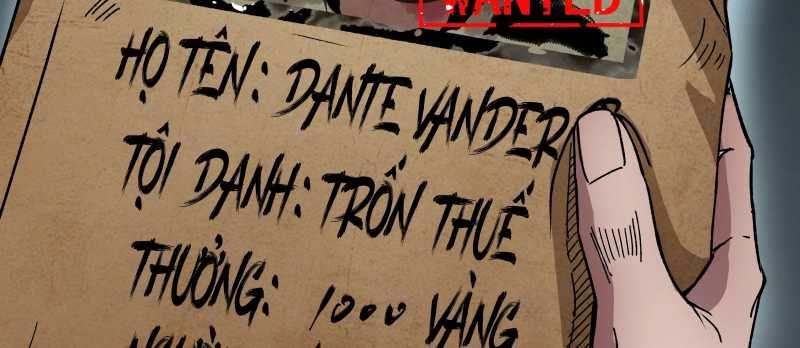 WANTED
HỌ TÊN: DANTE VANDER
TỘI DANH: TRỐN THUẾ
THƯỞNG: 1000 VÀNG